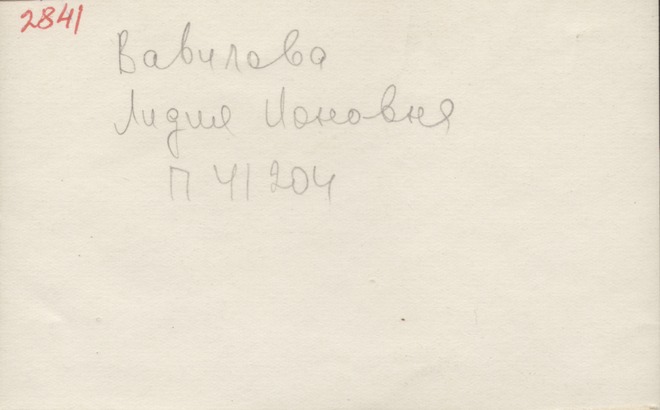 2841
Вавилова
Лидия Ионовна
П 41204